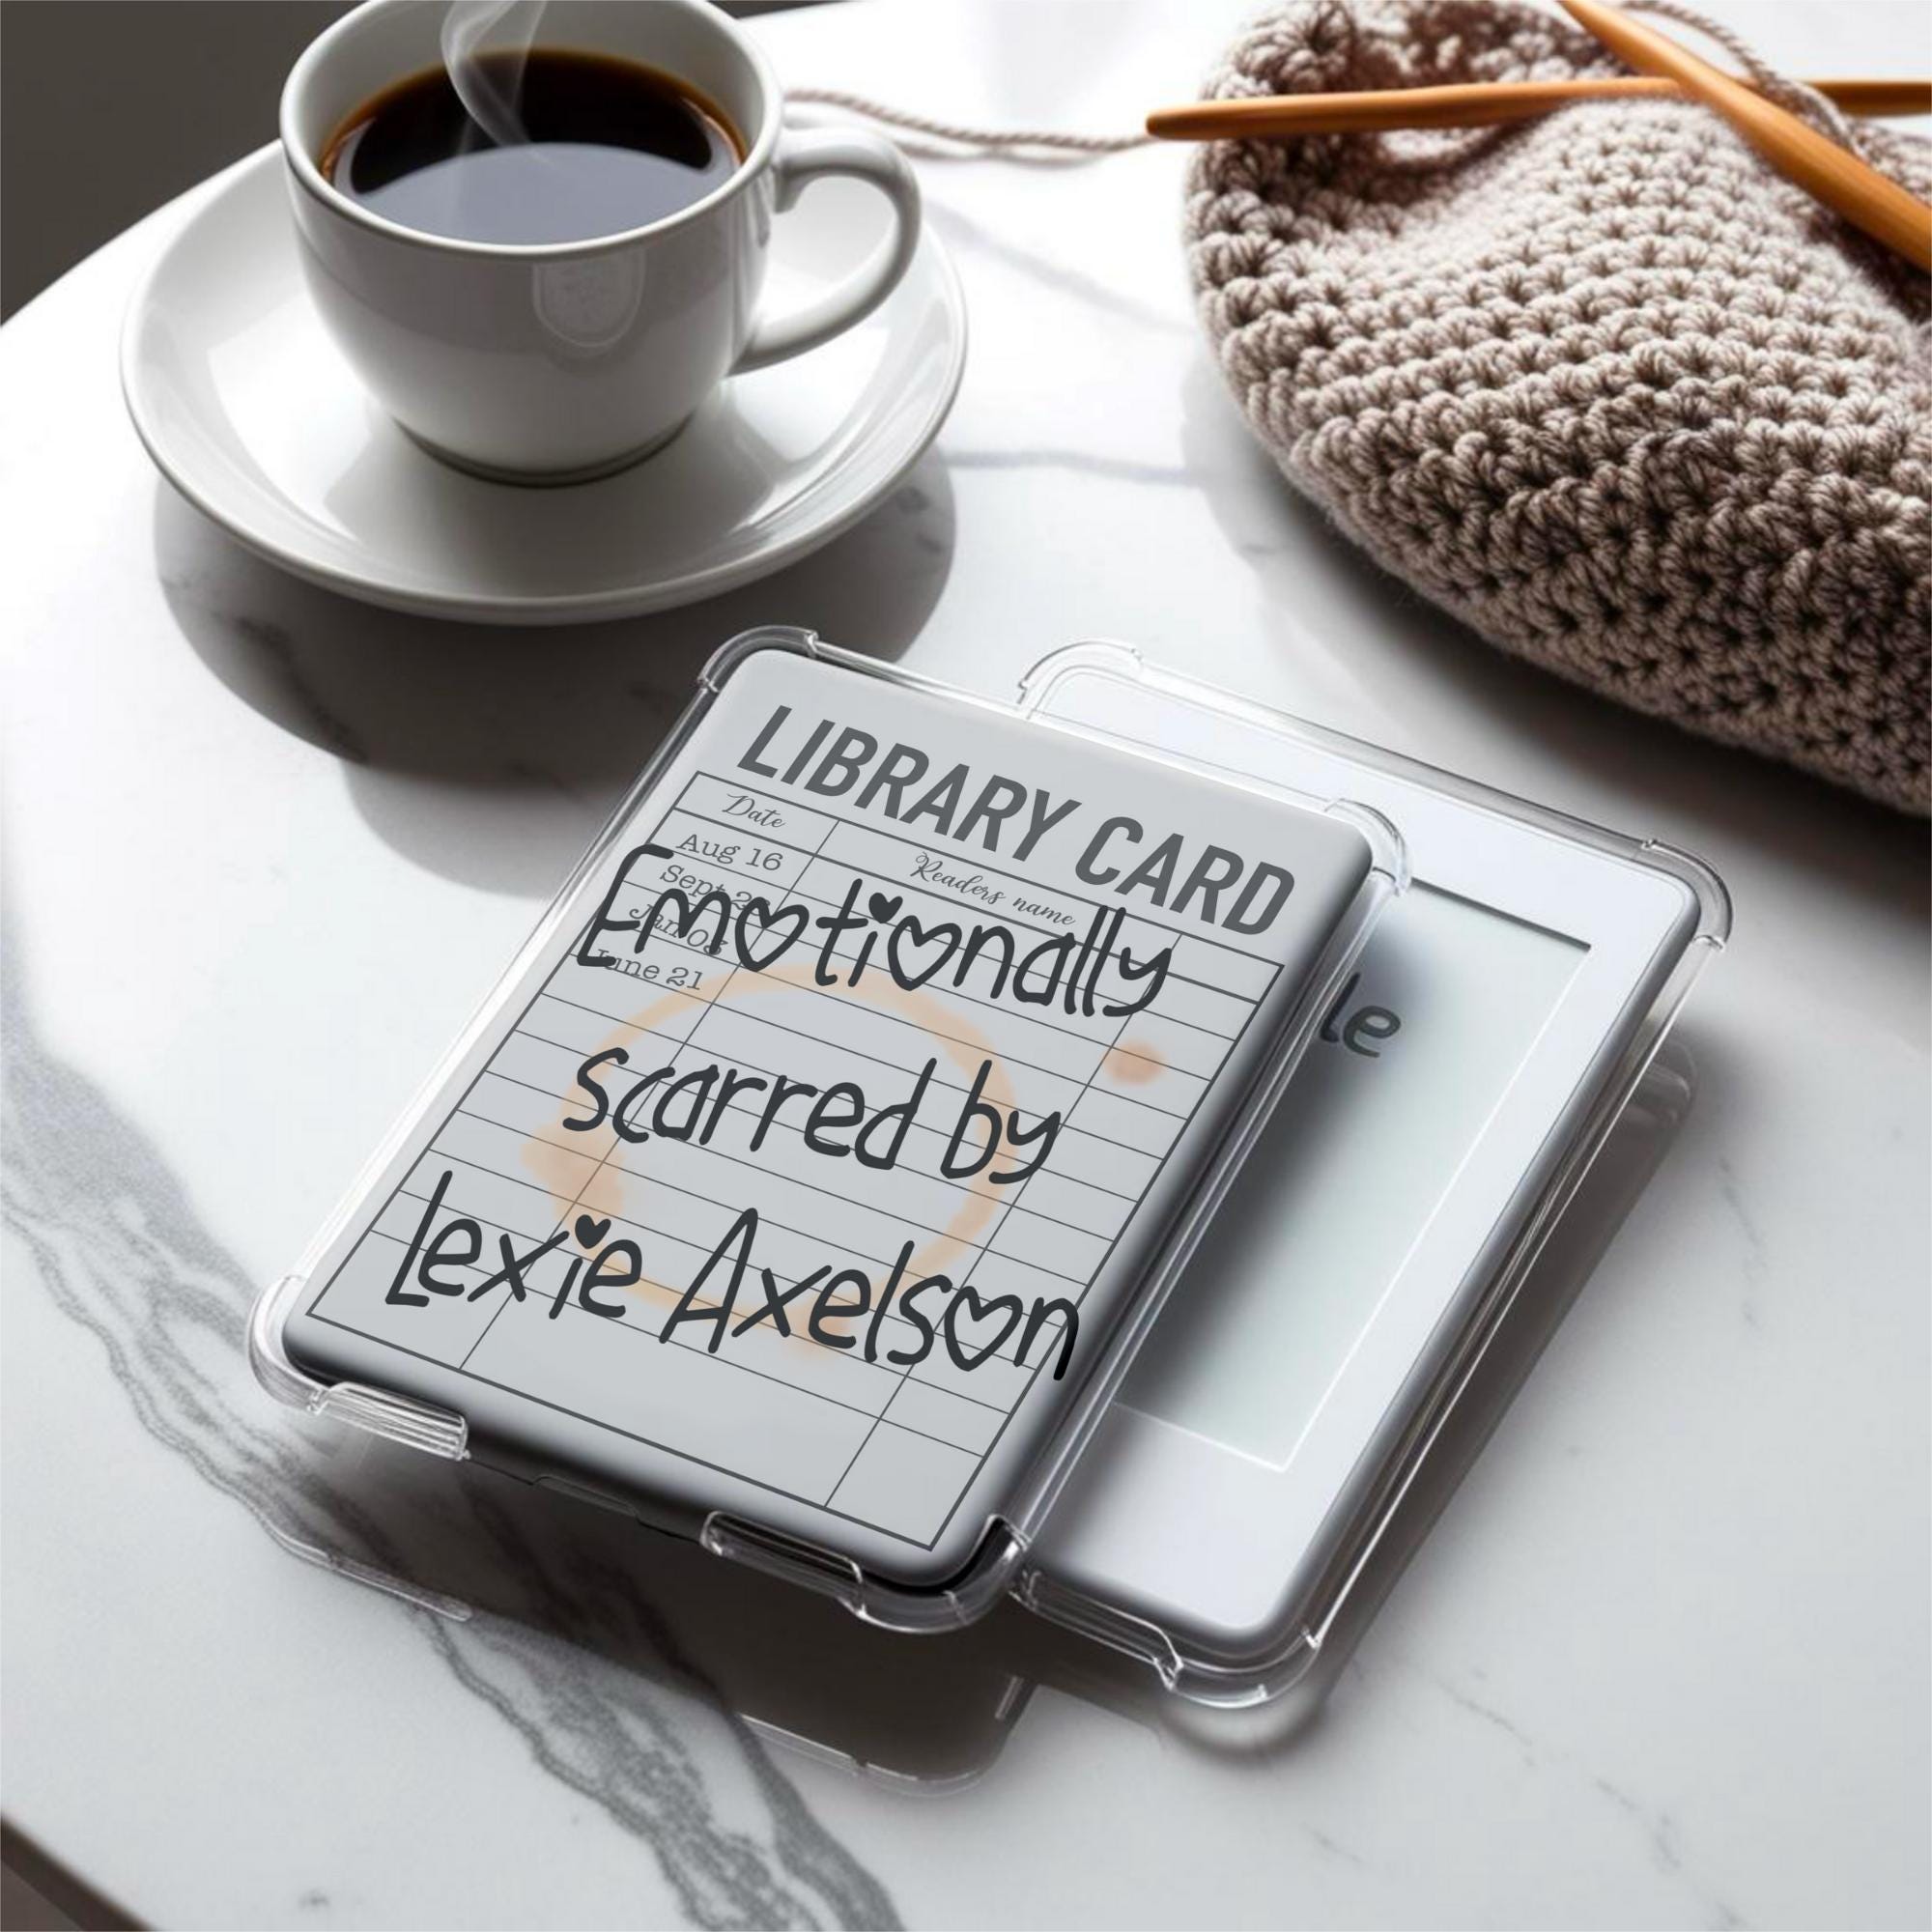 LIBRARY CARD
Date
Readers name
Aug 16
Sept 2
Jan 03
June 21
Emotionally
scarred by
Lexie Axelson
le